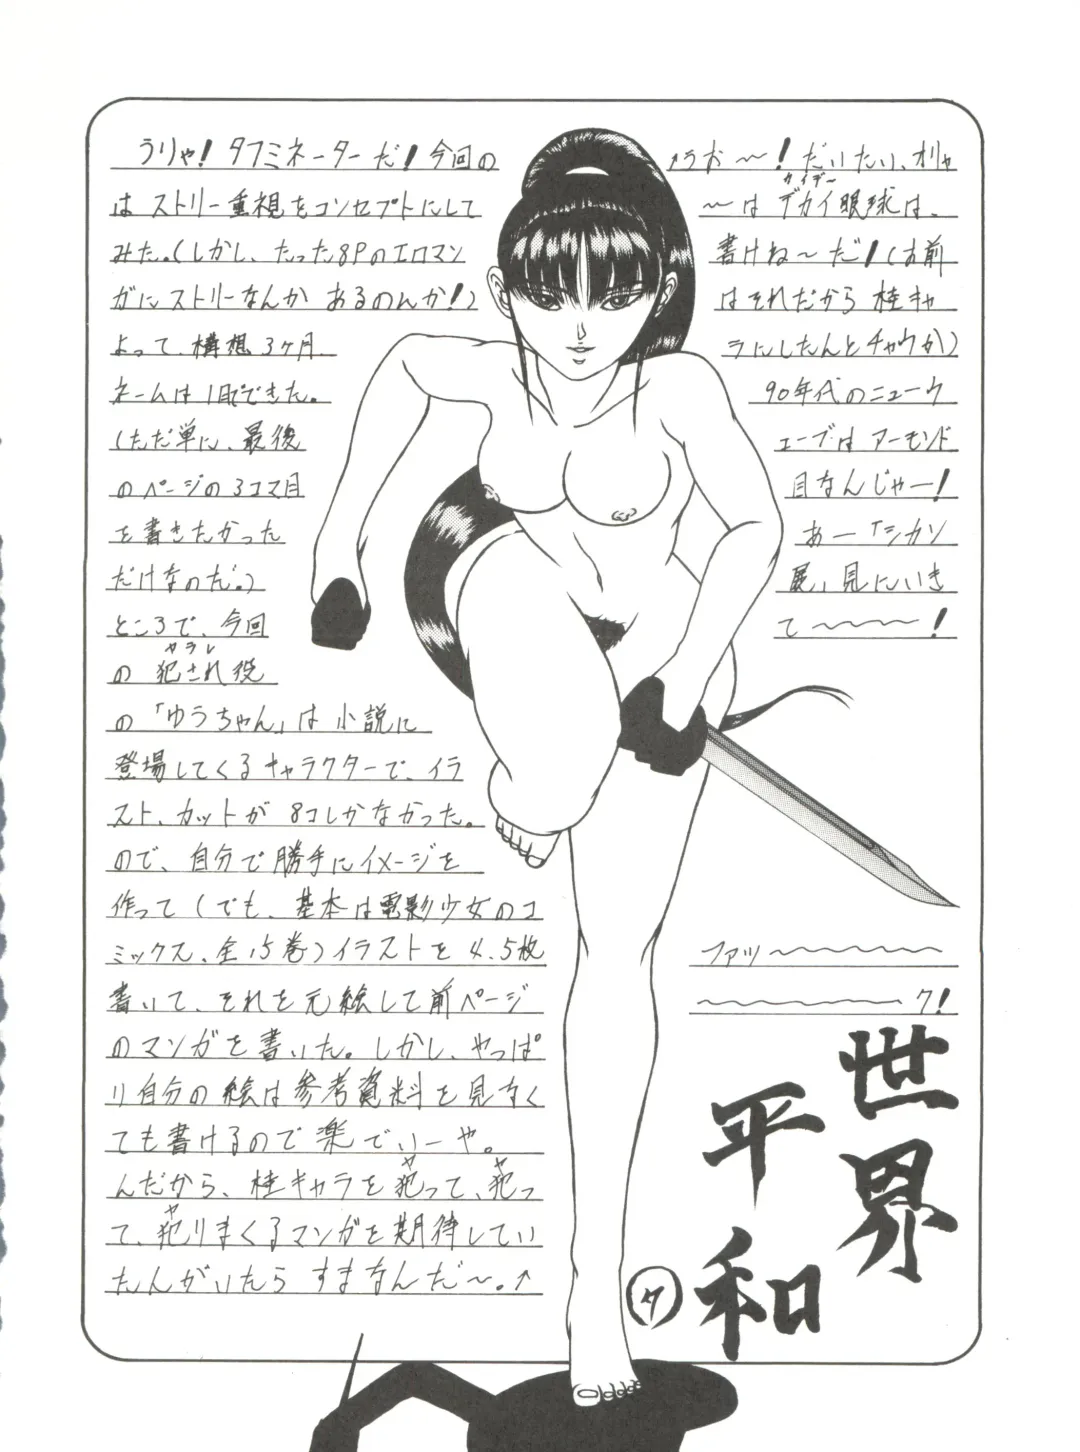 うりゃ! タフミネーターだ! 今回の
は ストリー重視をコンセプトにして
みた。(しかし、たった8Pのエロマン
ガにストリーなんか あるのんか!)
よって、構想3ヶ月
ネームは1日でできた。
(ただ単に、最後
のページの3コマ目
を書きたかった
だけなのだ。)
ところで、今回
ヤラレ
の 犯され役
の「ゆうちゃん」は 小説に
登場してくるキャラクターで、イラ
スト、カットが 8コしかなかった。
ので、自分で勝手にイメージを
作って(でも、基本は電影少女のコ
ミックス、全15巻)イラストを 4.5枚
書いて、それを元絵して前ページ
のマンガを書いた。しかし、やっぱ
り自分の絵は参考資料を見なく
ても書けるので楽でいーや。
ヤ ヤ
んだから、桂キャラを犯って、犯っ
ヤ
て、犯りまくるマンガを期待してい
たんがいたら すまなんだ〜。↑
↑うお〜! だいたい、オリャ
〜は デカイ眼球は、
書けね〜だ! (お前
はそれだから 桂キャ
ラにしたんとチャウか)
90年代のニューウ
ェーブは アーモンド
目なんじゃー!
あー「シカソ
展」見にいき
て〜〜〜!
ファッ〜〜〜〜〜〜
〜〜〜〜〜〜〜〜 ク!
世界
平和
ケ